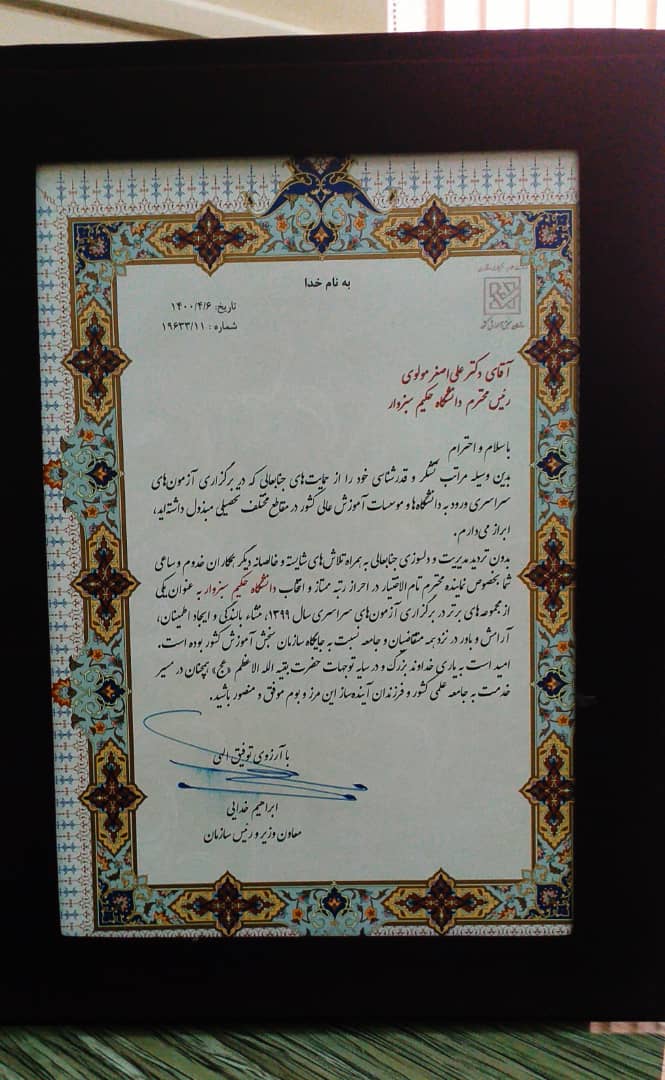 به نام خدا
تاریخ: ۱۴۰۰/۴/۶
شماره : ۱۹۶۳۳/۱۱
سازمان سنجش آموزش کشور
آقای دکتر علی‌اصغر مولوی
رئیس محترم دانشگاه حکیم سبزوار
باسلام و احترام
بدین وسیله مراتب تشکر و قدرشناسی خود را از حمایت‌های جنابعالی که در برگزاری آزمون‌های
سراسری ورود به دانشگاه‌ها و موسسات آموزش عالی کشور در مقاطع مختلف تحصیلی مبذول داشته‌اید،
ابراز می‌دارم.
بدون تردید مدیریت و دلسوزی جنابعالی به همراه تلاش‌های شایسته و خالصانه دیگر همکاران خدوم و ساعی
شما بخصوص نماینده محترم تام‌الاختیار در احراز رتبه ممتاز و انتخاب دانشگاه حکیم سبزوار به عنوان یکی
از مجموعه‌های برتر در برگزاری آزمون‌های سراسری سال ۱۳۹۹، منشاء بالندگی و ایجاد اطمینان،
آرامش و باور در نزد همه متقاضیان و جامعه نسبت به جایگاه سازمان سنجش آموزش کشور بوده است.
امید است به یاری خداوند بزرگ و در سایه توجهات حضرت بقیه الله الاعظم «عج» همچنان در مسیر
خدمت به جامعه علمی کشور و فرزندان آینده‌ساز این مرز و بوم موفق و منصور باشید.
با آرزوی توفیق الهی
ابراهیم خدایی
معاون وزیر و رئیس سازمان